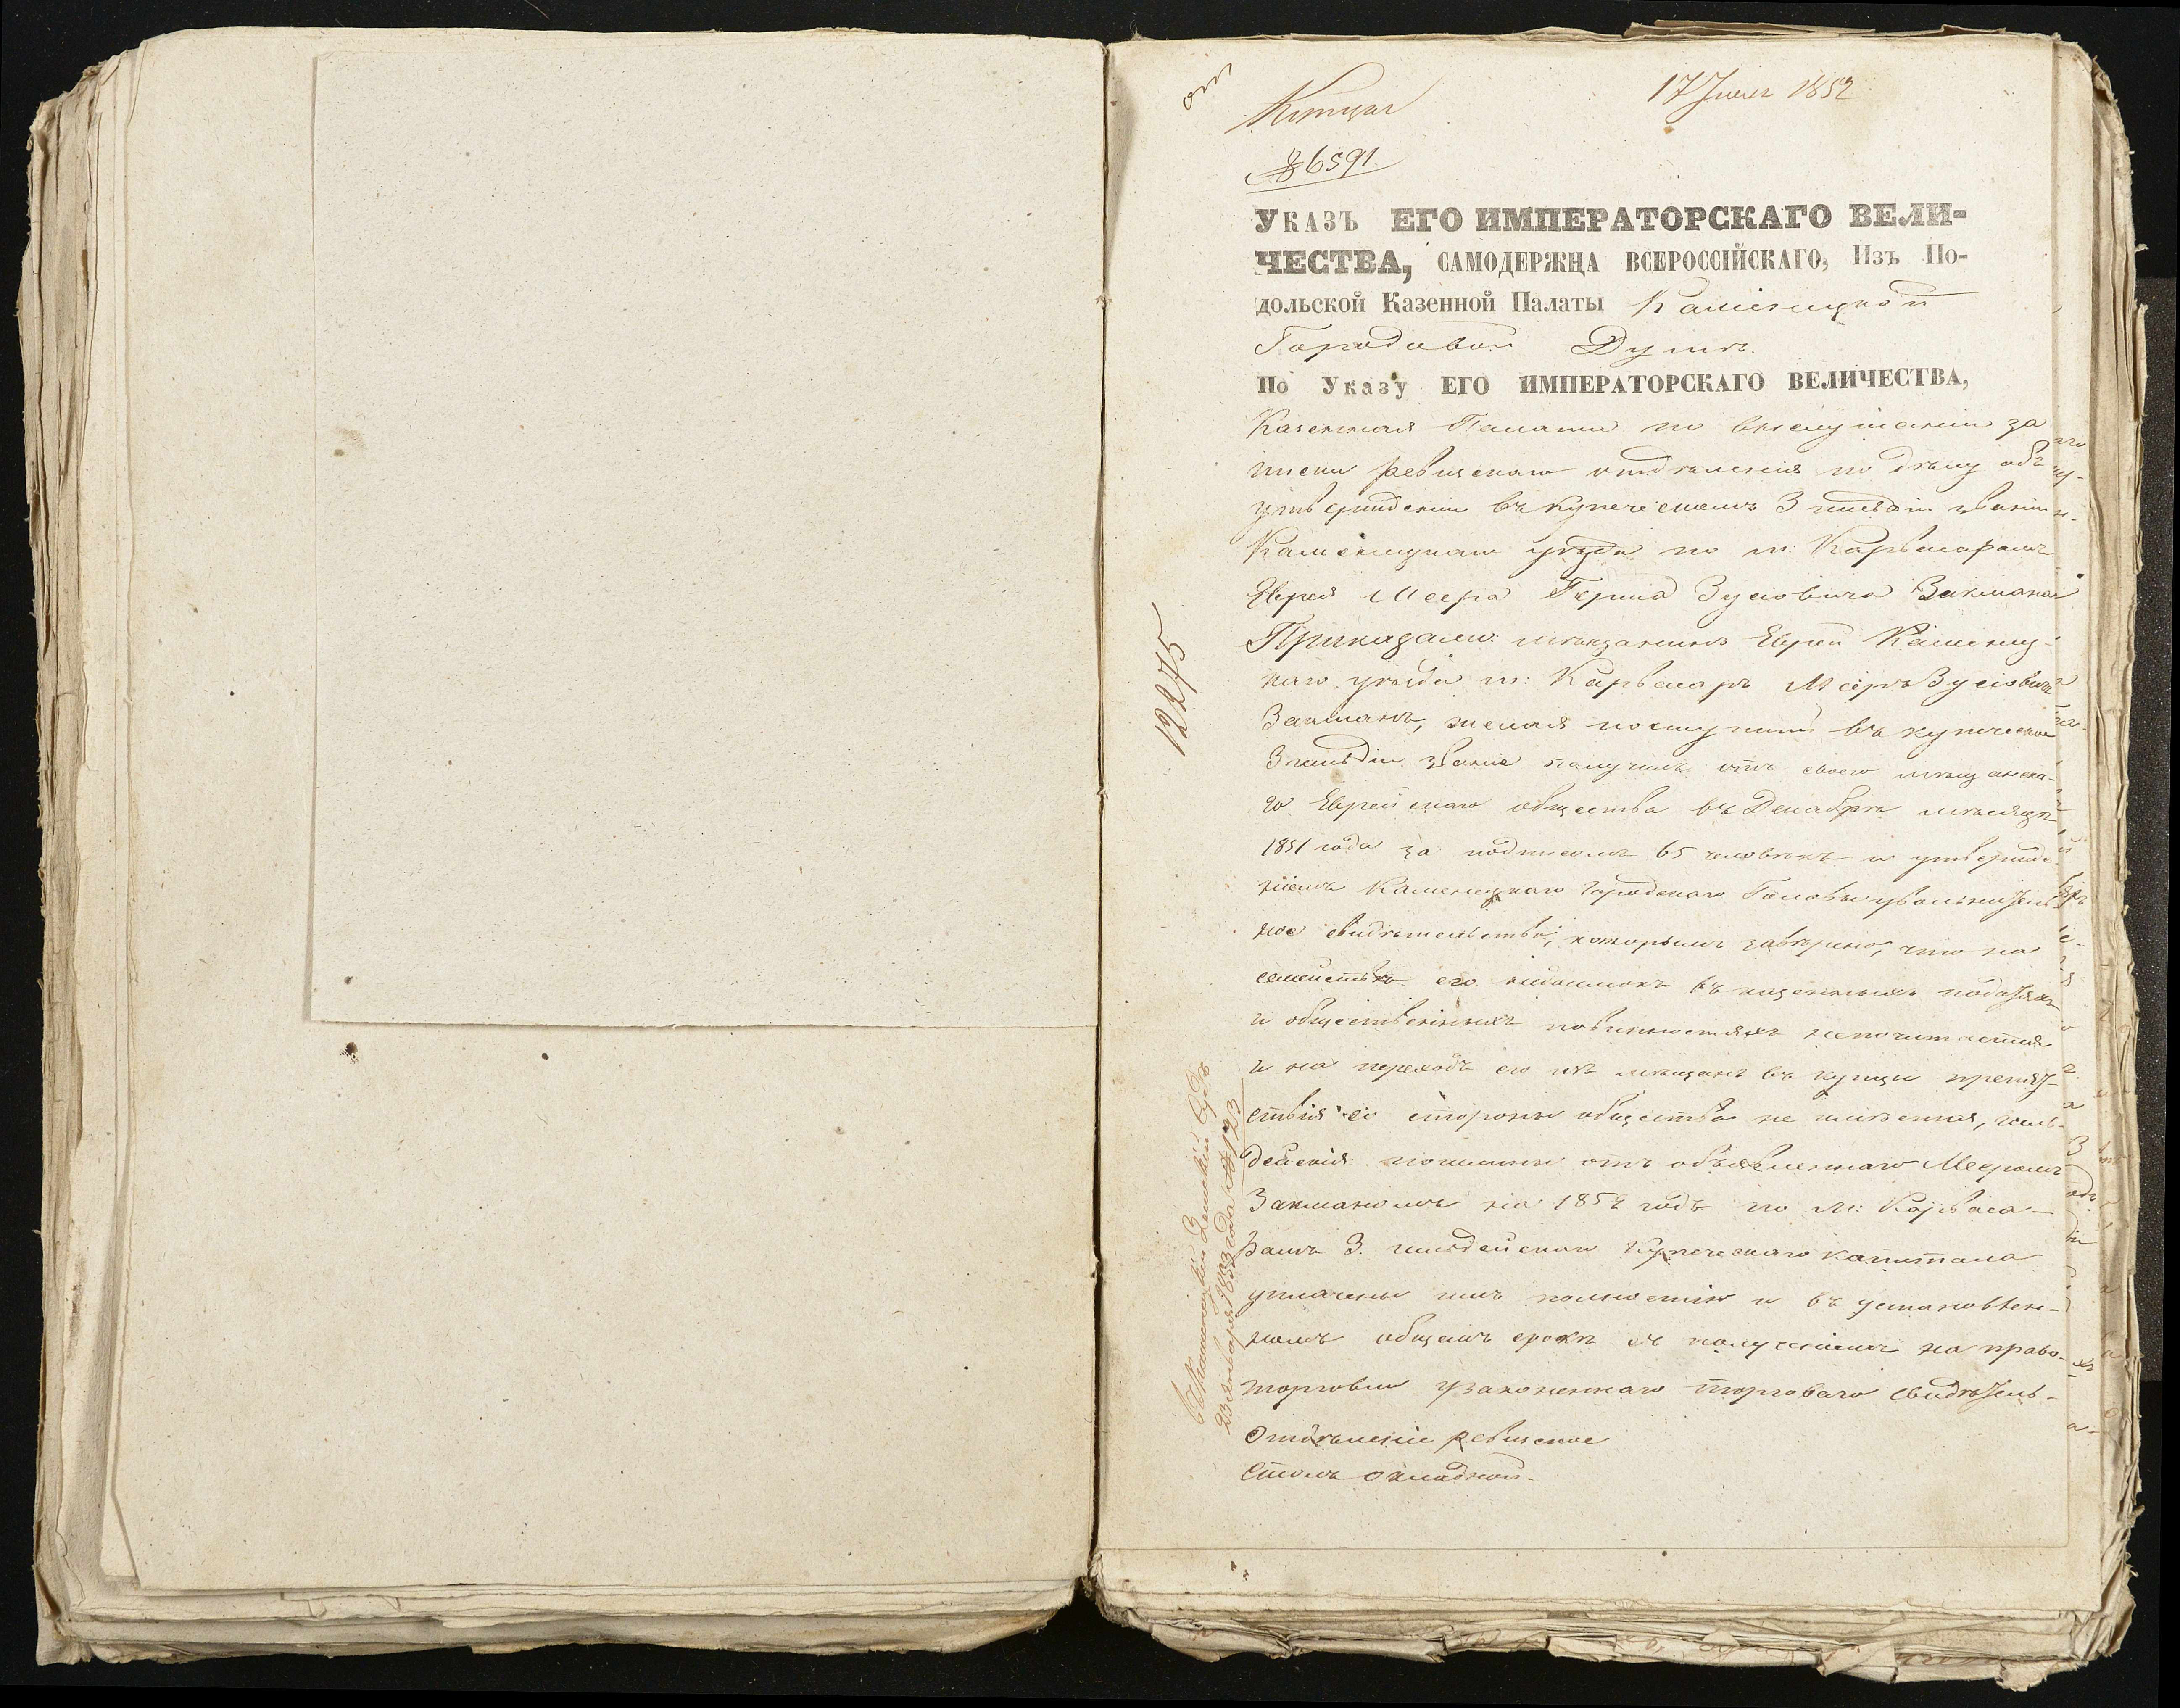 17 Іюля 1852
№ 6591
УКАЗЪ ЕГО ИМПЕРАТОРСКАГО ВЕЛИ-
ЧЕСТВА, САМОДЕРЖЦА ВСЕРОССІЙСКАГО, Изъ По-
дольской Казенной Палаты Каменецкой
Городовой Думѣ.
По Указу ЕГО ИМПЕРАТОРСКАГО ВЕЛИЧЕСТВА,
Казенная Палата по выслушаніи за
писки Ревизскаго отдѣленія по дѣлу объ
утвержденіи въ купеческомъ 3 гильдіи званіи
Каменецкаго уѣзда по м: Карвасарамъ
Еврея Меера Герша Зусіовича Закмана
Приказали: мѣщанинъ Еврей Каменец-
каго уѣзда м: Карвасаръ Меръ Зусіовичъ
Закманъ, желая поступить въ купеческое
3 гильдіи званіе получилъ отъ своего мѣщанска-
го Еврейскаго общества въ Декабрѣ мѣсяцѣ
1851 года за подписомъ 65 человѣкъ и утвержде-
ніемъ Каменецкаго Городскаго Головы увольнитель-
ное свидѣтельство, которымъ завѣрено, что на
семействѣ его недоимокъ въ казенныхъ податяхъ
и общественныхъ повинностяхъ непочитается
и на переходъ его изъ мѣщанъ въ купцы препят-
ствія со стороны общества не имѣется, гиль-
дейскія пошлины отъ объявленнаго Мееромъ
Закманомъ на 1852 годъ по м: Карваса-
рамъ 3. гильдейскаго Купеческаго капитала
уплачены имъ полностію и въ установлен-
номъ общемъ срокѣ съ полученіемъ на право
торговли узаконеннаго торговаго свидѣтель-
Отдѣленіе Ревизское
Столъ окладной.
12275
Каменецкій Земскій Судъ
23 Января 1853 года № 123